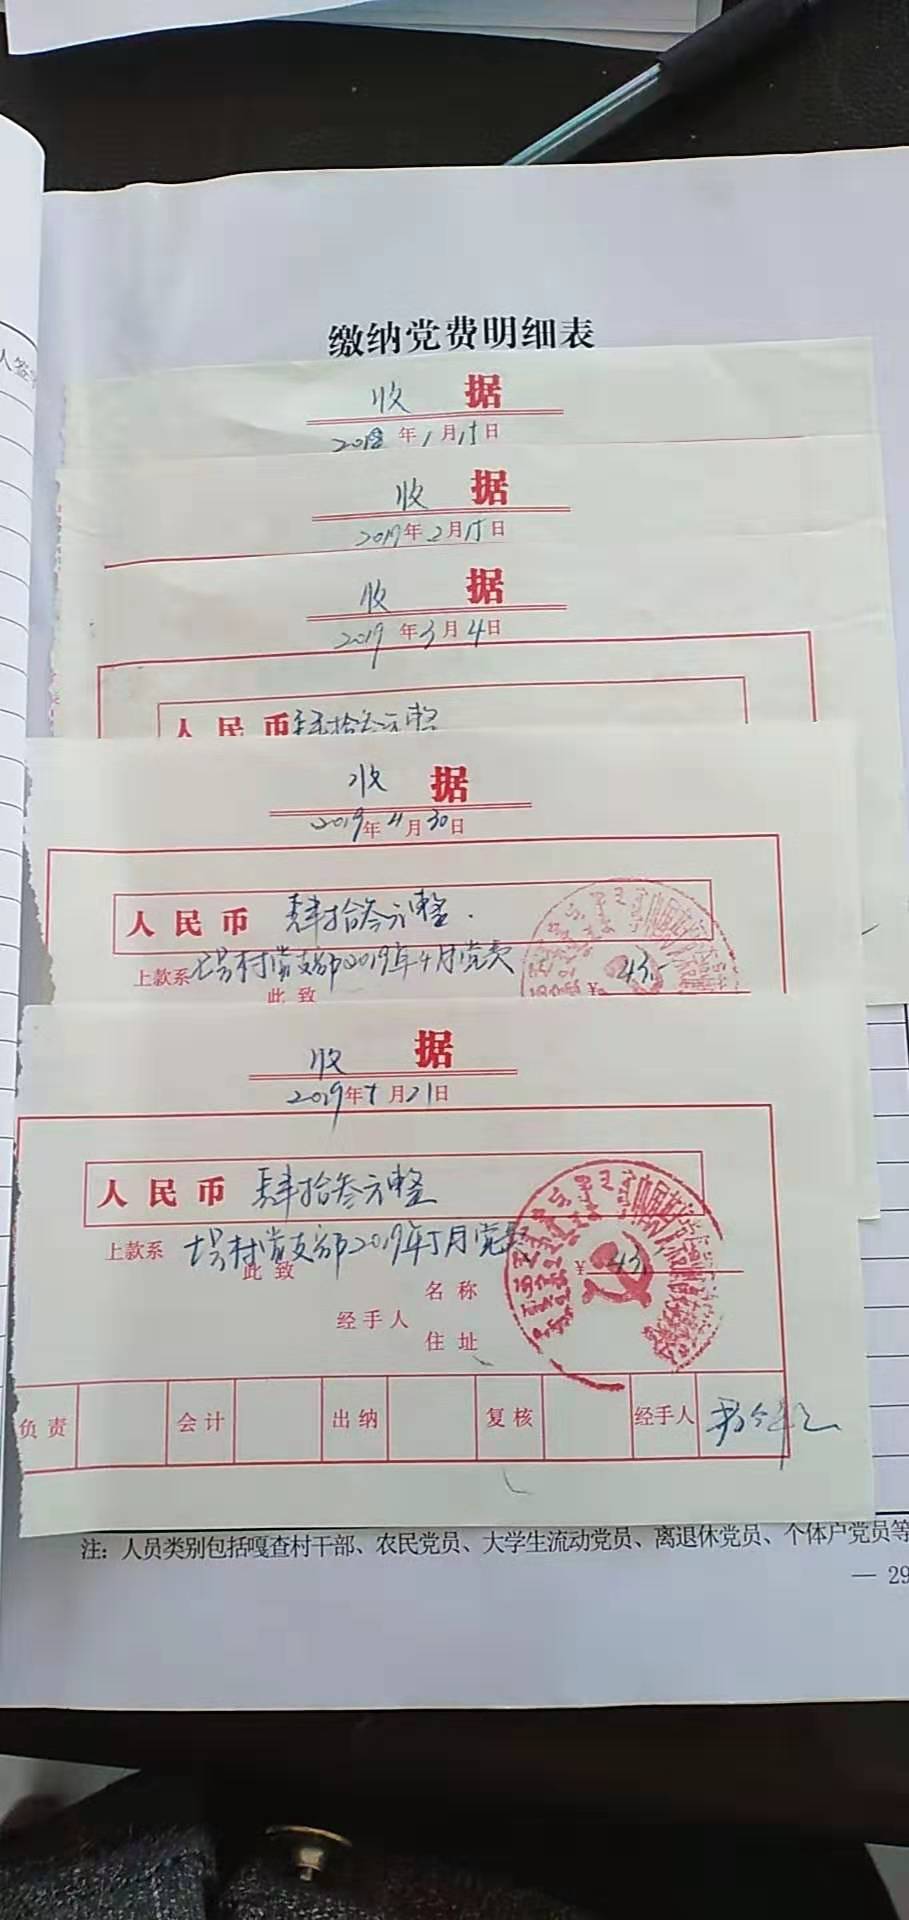 缴纳党费明细表
收 据
年1月15日
收 据
2019年2月15日
收 据
2019年3月4日
人民币 肆拾叁元整
收 据
2019年4月30日
人民币 肆拾叁元整.
上款系 七号村党支部2019年4月党费
¥43.-
此致
收 据
2019年5月21日
人民币 肆拾叁元整
上款系 七号村党支部2019年5月党费
此致
¥43.
名称
经手人
住址
负责 会计 出纳 复核 经手人
注：人员类别包括嘎查村干部、农民党员、大学生流动党员、离退休党员、个体户党员等
— 29